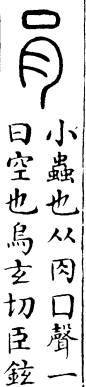 肙
小蟲也从肉口聲一
曰空也烏玄切臣鉉